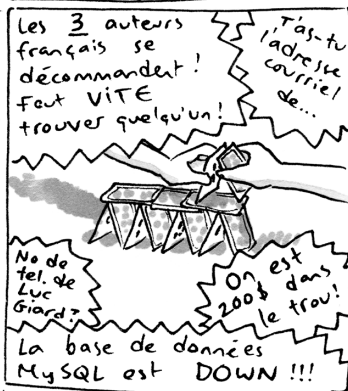 Les 3 auteurs
français se
décommandent!
Faut VITE
trouver quelqu'un!
T'as-tu
l'adresse
courriel
de...
No de
tel. de
Luc
Giard?
On est
200$ dans
le trou!
La base de données
MySQL est DOWN!!!